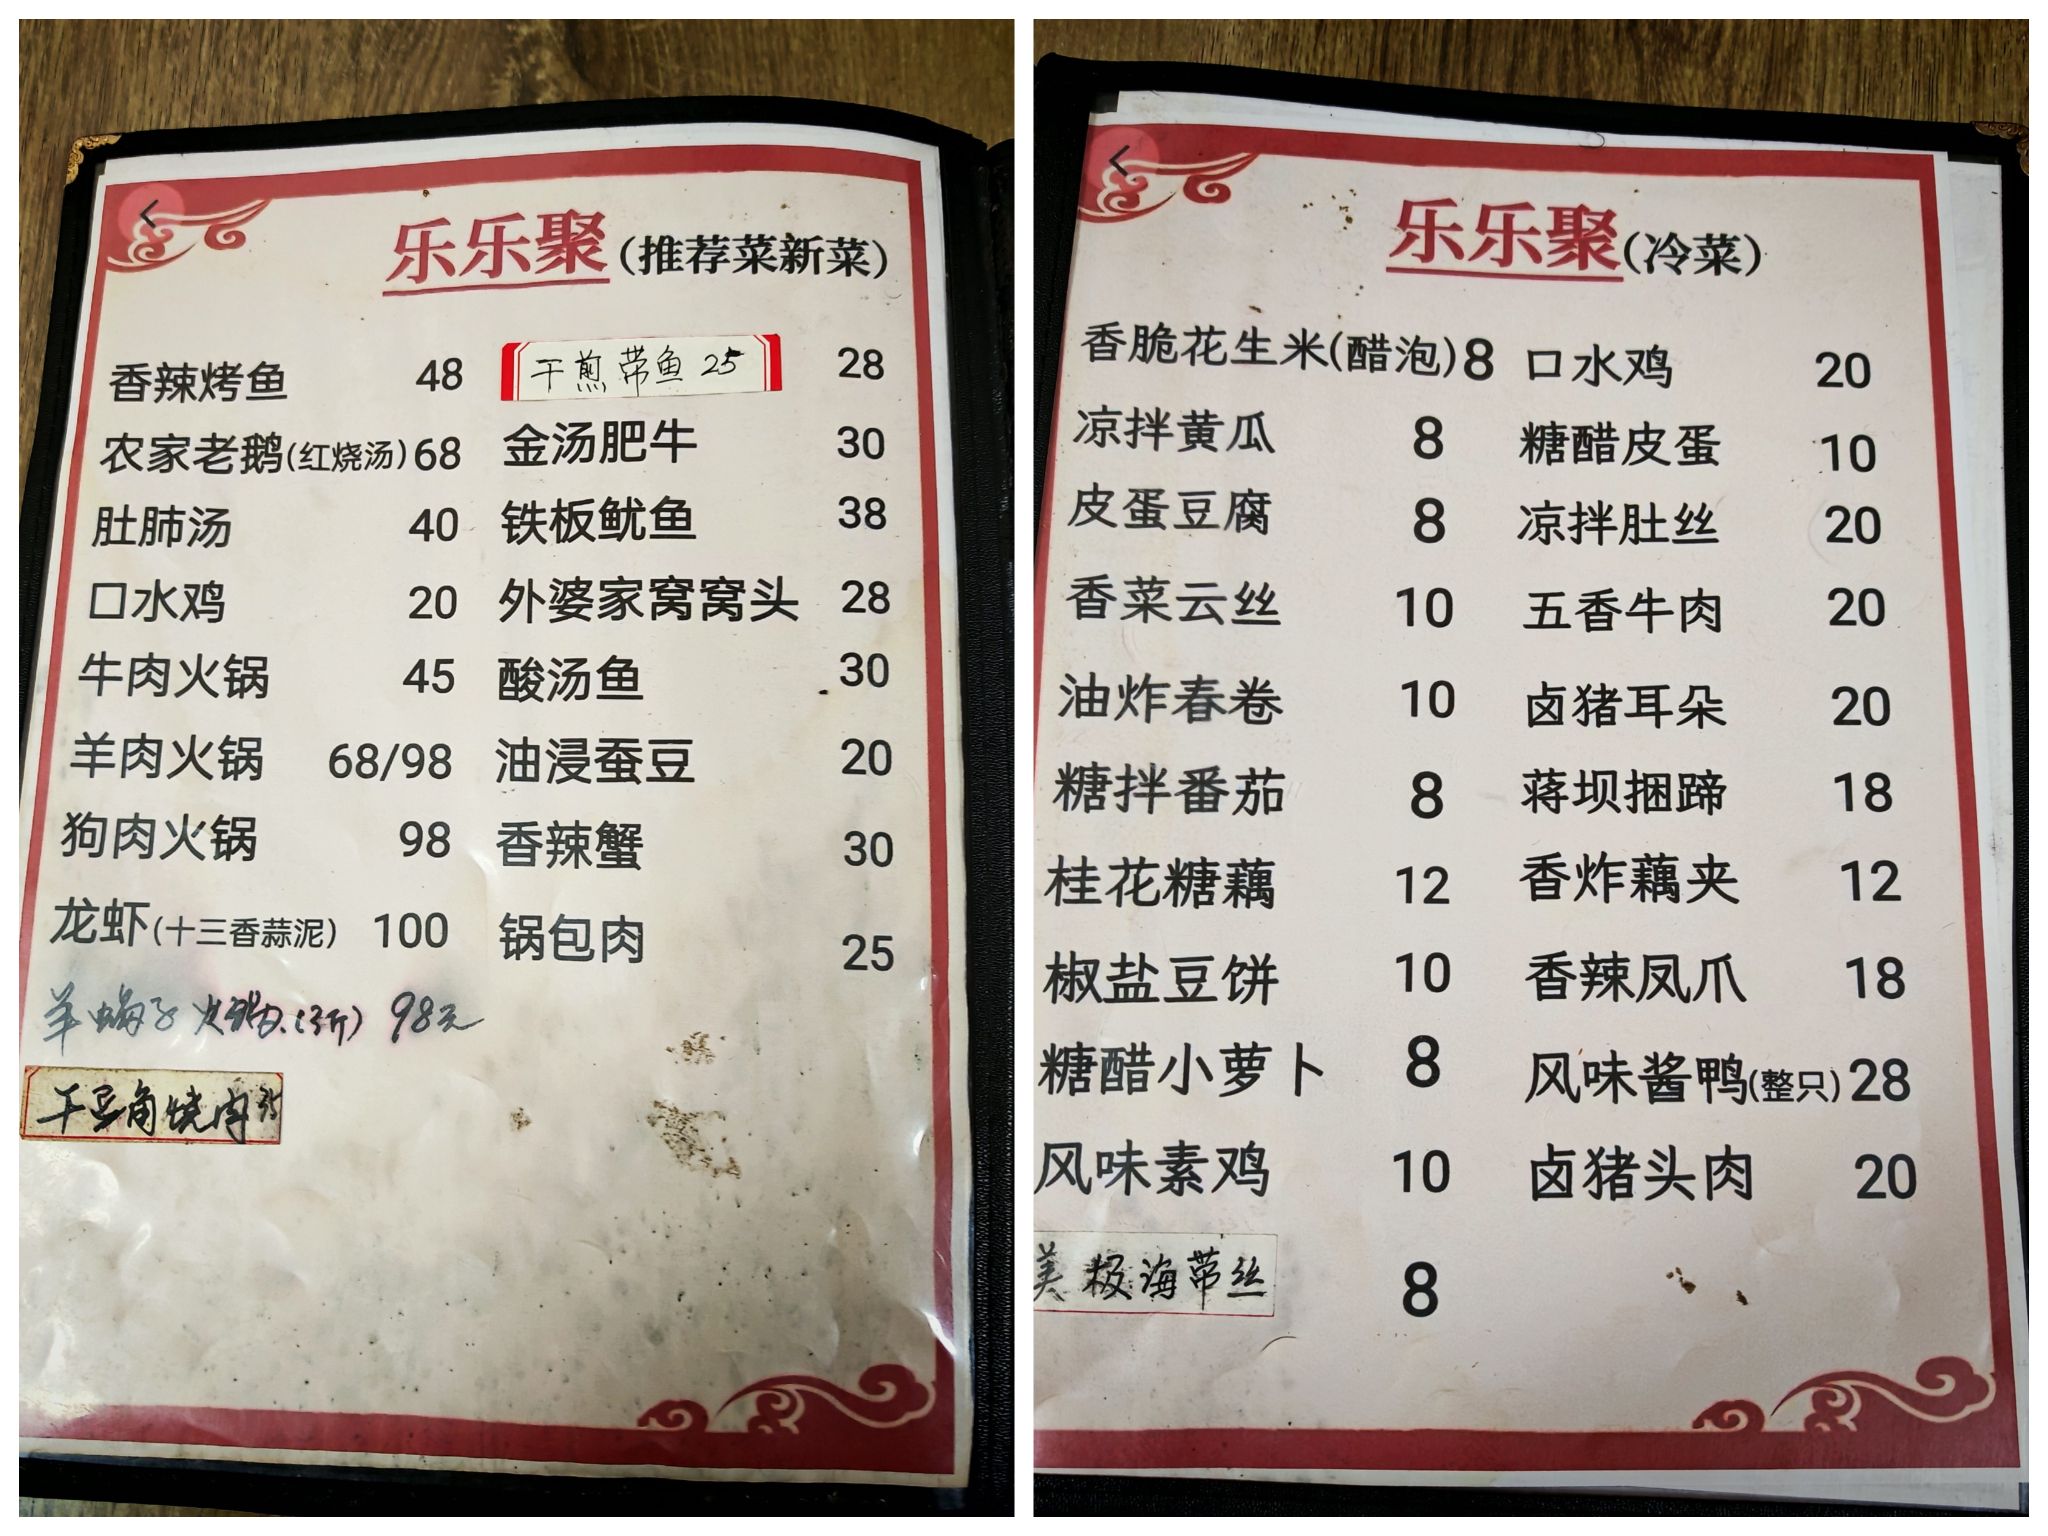 乐乐聚(推荐菜新菜)
香辣烤鱼 48
农家老鹅(红烧汤) 68
肚肺汤 40
口水鸡 20
牛肉火锅 45
羊肉火锅 68/98
狗肉火锅 98
龙虾(十三香蒜泥) 100
羊蝎子火锅(3斤) 98元
干豆角烧肉
干煎带鱼 25 28
金汤肥牛 30
铁板鱿鱼 38
外婆家窝窝头 28
酸汤鱼 30
油浸蚕豆 20
香辣蟹 30
锅包肉 25
乐乐聚(冷菜)
香脆花生米(醋泡) 8
凉拌黄瓜 8
皮蛋豆腐 8
香菜云丝 10
油炸春卷 10
糖拌番茄 8
桂花糖藕 12
椒盐豆饼 10
糖醋小萝卜 8
风味素鸡 10
美极海带丝 8
口水鸡 20
糖醋皮蛋 10
凉拌肚丝 20
五香牛肉 20
卤猪耳朵 20
蒋坝捆蹄 18
香炸藕夹 12
香辣凤爪 18
风味酱鸭(整只) 28
卤猪头肉 20